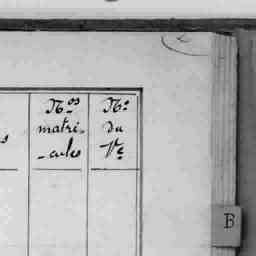 2
Nos
matri-
-cules
No
du
Vc
s
B